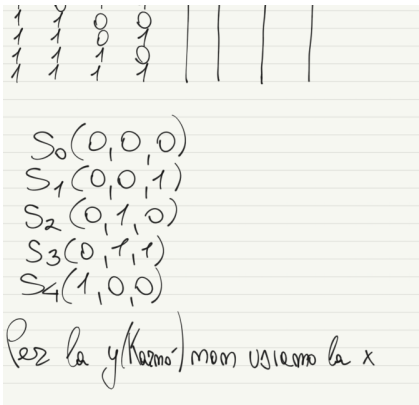 1 1 0 0
1 1 0 1
1 1 1 0
1 1 1 1
S0(0,0,0)
S1(0,0,1)
S2(0,1,0)
S3(0,1,1)
S4(1,0,0)
Per la y(Karnò) non usiamo la x